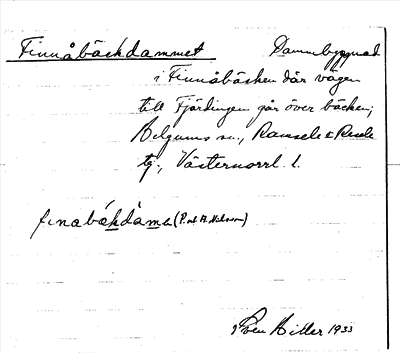 Finnåbäckdammet Dammbyggnad
i Finnåbäcken där vägen
till Fjärdingen går över bäcken;
Helgums sn., Ramsele & Resele
tg., Västernorrl. l.
finabäkdama (P. ul A. Nilsson)
Sven Hitler 1933